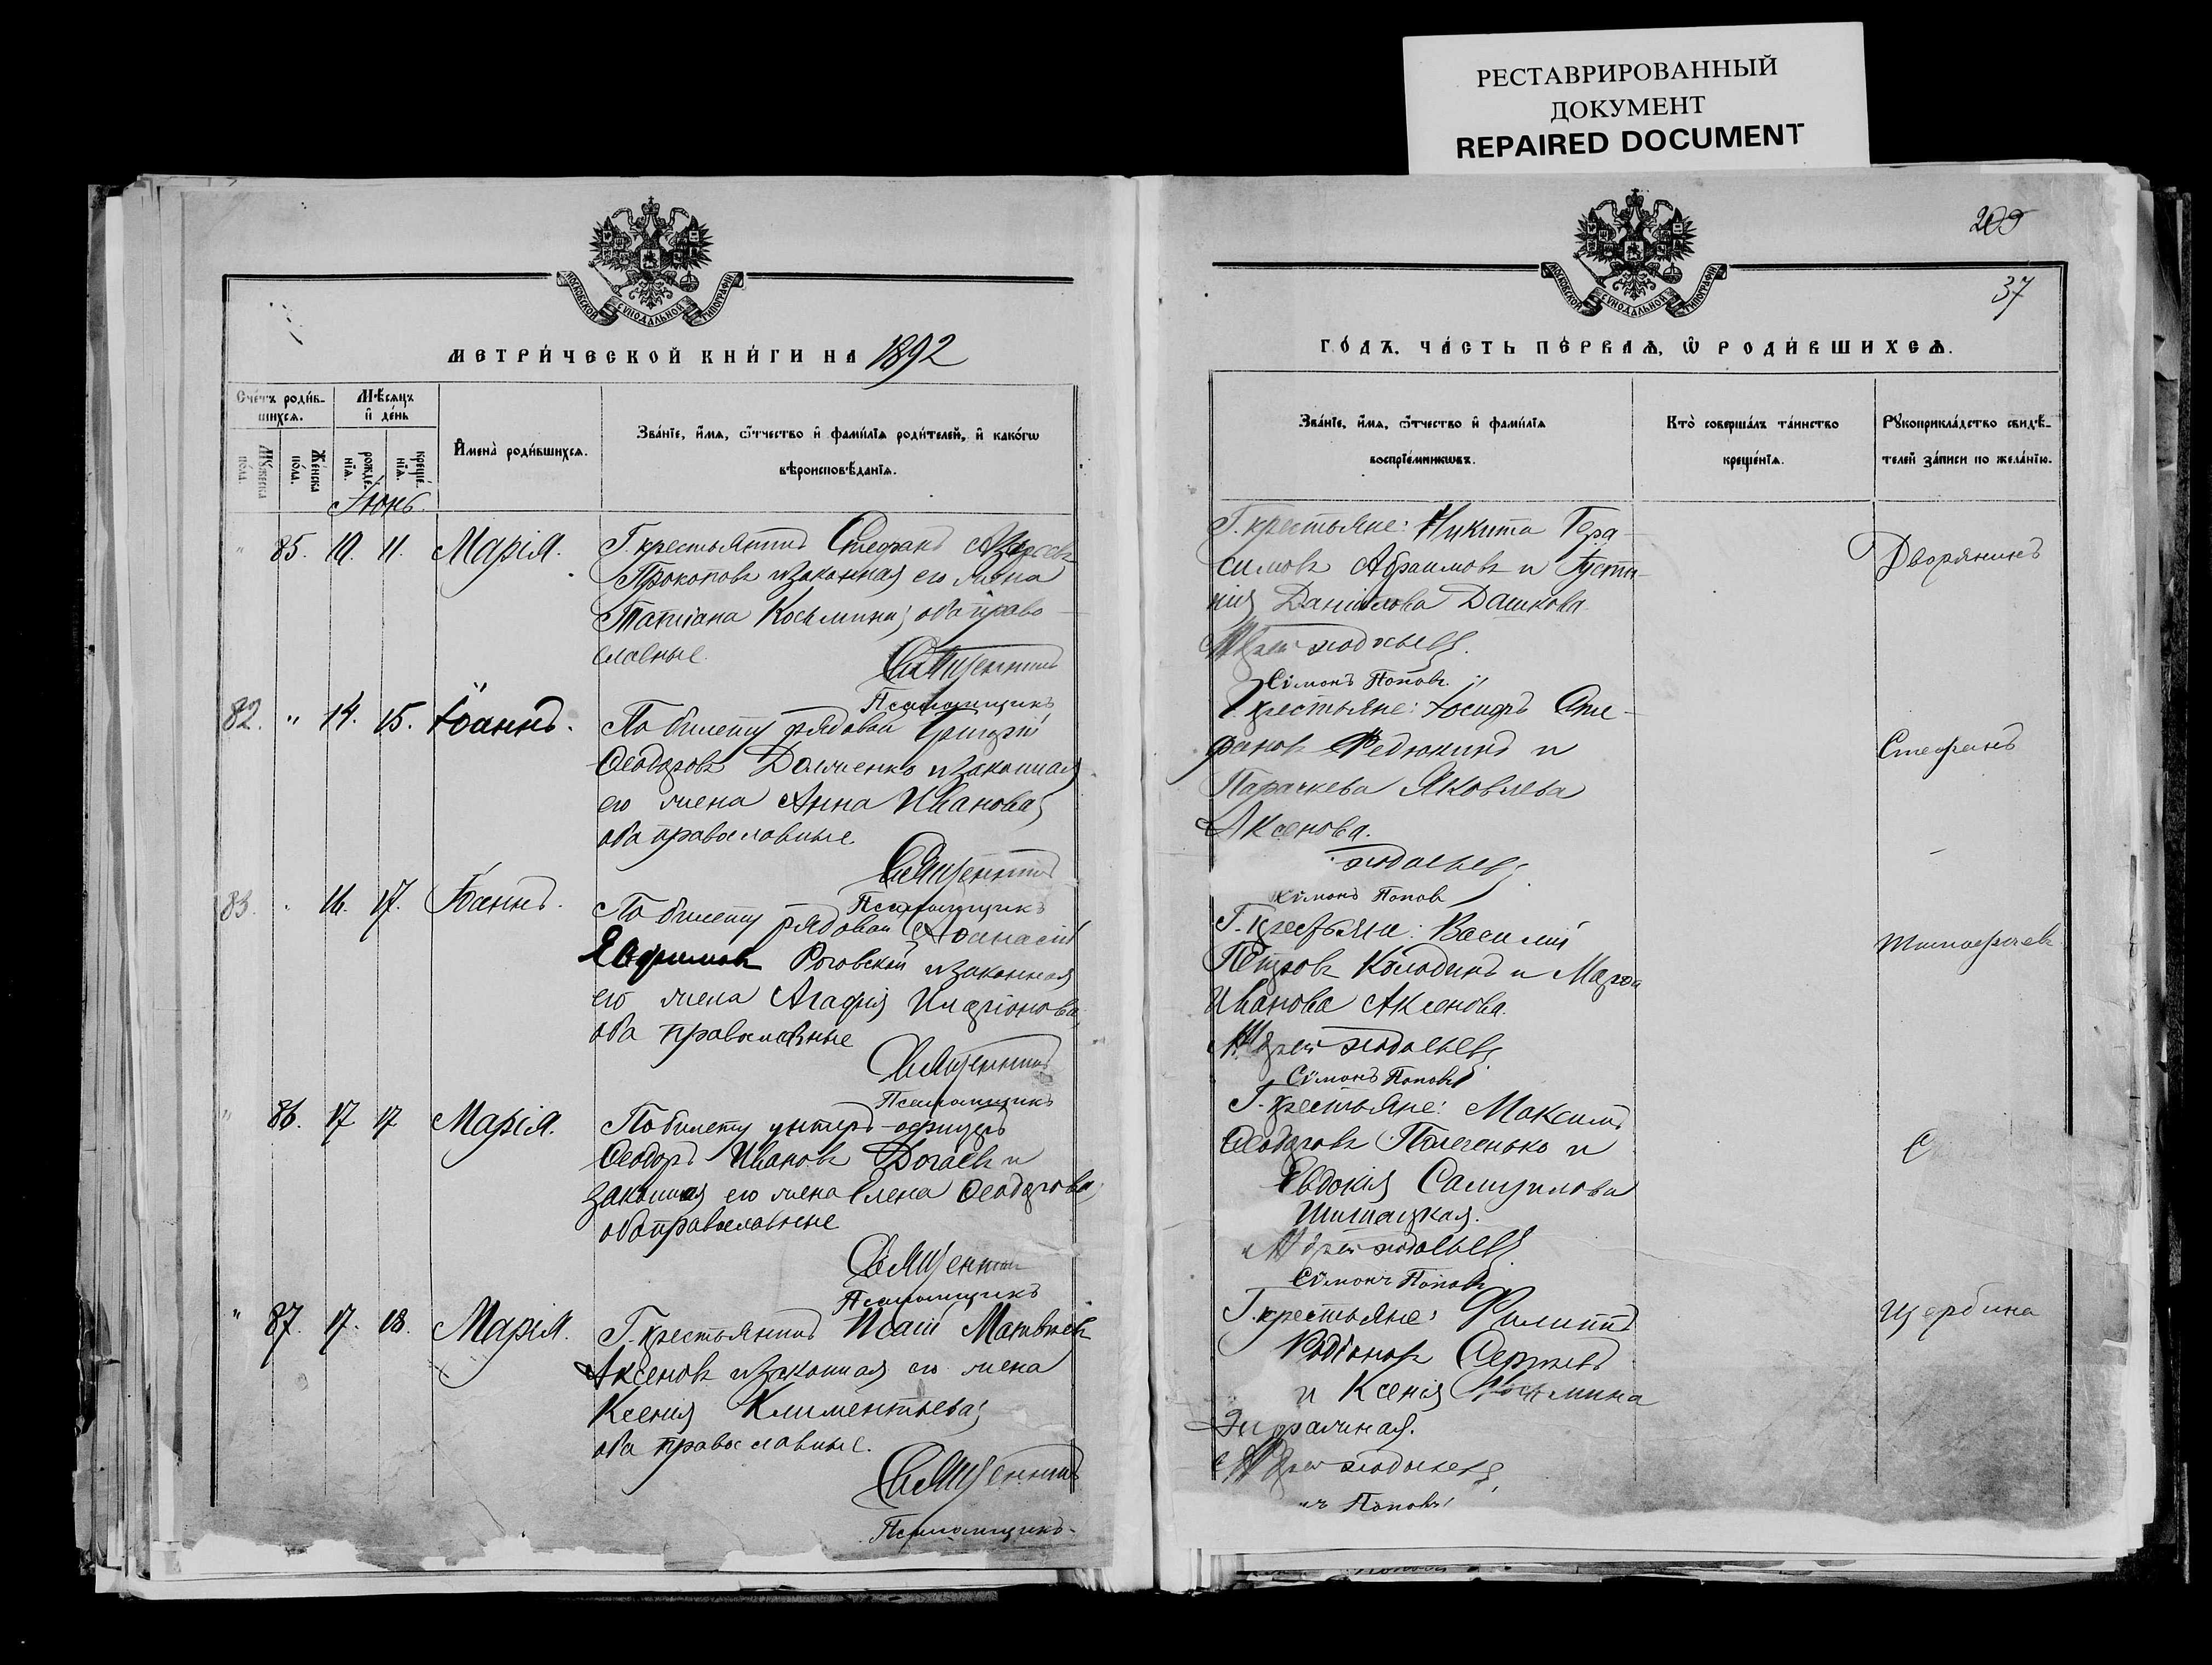 РЕСТАВРИРОВАННЫЙ
ДОКУМЕНТ
REPAIRED DOCUMENT
МОСКОВСКОЙ СѴНОДАЛЬНОЙ ТИПОГРАФІИ
МЕТРИ́ЧЕСКОЙ КНИ́ГИ НА 1892
Сче́тъ роди́в-
шихсѧ.
Мѣ́сѧцъ
и҆ де́нь
Мꙋ́жеска
по́ла.
Же́нска
по́ла.
рожде́-
нїѧ.
креще́-
нїѧ.
И҆мена̀ роди́вшихсѧ.
Зва́нїе, и҆́мѧ, ѻ҆́тчество и҆ фами́лїѧ роди́телей, и҆ како́гѡ
вѣроисповѣ́данїѧ.
Іюнь.
" 85. 10. 11. Марія. Г. крестьянинъ Стефанъ
Прокоповъ и законная его жена
Татіана Косьмина; оба право-
славные.
Священникъ
Псаломщикъ
82. " 14. 15. Іоаннъ. По билету рядовой Григорій
Ѳеодоровъ и законная
его жена Анна Иванова;
оба православные.
Священникъ
Псаломщикъ
83. " 16. 17. Іоаннъ. По билету рядовой Аѳанасій
Евфимовъ Роговской и законная
его жена Агафія Иларіонова
оба православные
Священникъ
Псаломщикъ
" 86. 17 17 Марія. По билету унтеръ-офицеръ
Ѳеодоръ Ивановъ и
законная его жена Елена Ѳеодорова;
оба православные
Священникъ
Псаломщикъ
" 87. 17. 18. Марія. Г. крестьянинъ Исаій Матвѣевъ
Аксеновъ и законная его жена
Ксенія Климентьева;
оба православные.
Священникъ
Псаломщикъ
209
37
МОСКОВСКОЙ СѴНОДАЛЬНОЙ ТИПОГРАФІИ
ГО́ДЪ. ЧА́СТЬ ПЕ́РВАѦ, Ѡ҆ РОДИ́ВШИХСѦ.
Зва́нїе, и҆́мѧ, ѻ҆́тчество и҆ фами́лїѧ
воспрїе́мникѡвъ.
Кто̀ соверша́лъ та́инство
креще́нїѧ.
Рꙋкоприкла́дство свидѣ́-
телей за́писи по жела́нїю.
Г. крестьяне: Никита Гера-
симовъ Абрамовъ и Іусти-
нія Даніилова Дашкова
Дворянинъ
Сѵмонъ Поповъ.
Г. крестьяне: Іосифъ Сте-
фановъ Федюкинъ и
Параскева Яковлева
Аксенова.
Стефанъ
Сѵмонъ Поповъ
Г. крестьяне: Василій
Петровъ Колодинъ и Марѳа
Иванова Аксенова.
Тимофѣевъ
Сѵмонъ Поповъ
Г. крестьяне: Максимъ
Ѳеодоровъ и
Евдокія Самуилова
Шишацкая.
Сѵмонъ Поповъ
Г. крестьяне: Филиппъ
Родіоновъ
и Ксенія Косьмина
Щербина
Поповъ